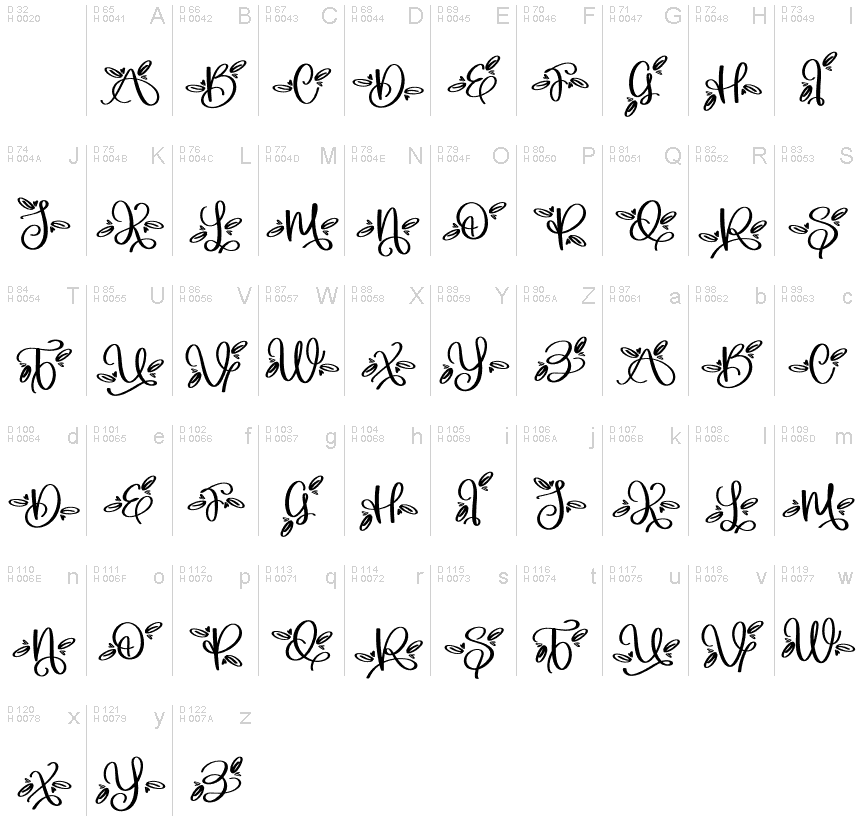 D 32 D 65 A D 66 B D 67 C D 68 D D 69 E D 70 F D 71 G D 72 H D 73 I
H 0020 H 0041 H 0042 H 0043 H 0044 H 0045 H 0046 H 0047 H 0048 H 0049
A B C D E F G H I
D 74 J D 75 K D 76 L D 77 M D 78 N D 79 O D 80 P D 81 Q D 82 R D 83 S
H 004A H 004B H 004C H 004D H 004E H 004F H 0050 H 0051 H 0052 H 0053
J K L M N O P Q R S
D 84 T D 85 U D 86 V D 87 W D 88 X D 89 Y D 90 Z D 97 a D 98 b D 99 c
H 0054 H 0055 H 0056 H 0057 H 0058 H 0059 H 005A H 0061 H 0062 H 0063
T U V W X Y Z A B C
D 100 d D 101 e D 102 f D 103 g D 104 h D 105 i D 106 j D 107 k D 108 l D 109 m
H 0064 H 0065 H 0066 H 0067 H 0068 H 0069 H 006A H 006B H 006C H 006D
D E F G H I J K L M
D 110 n D 111 o D 112 p D 113 q D 114 r D 115 s D 116 t D 117 u D 118 v D 119 w
H 006E H 006F H 0070 H 0071 H 0072 H 0073 H 0074 H 0075 H 0076 H 0077
N O P Q R S T U V W
D 120 x D 121 y D 122 z
H 0078 H 0079 H 007A
X Y Z